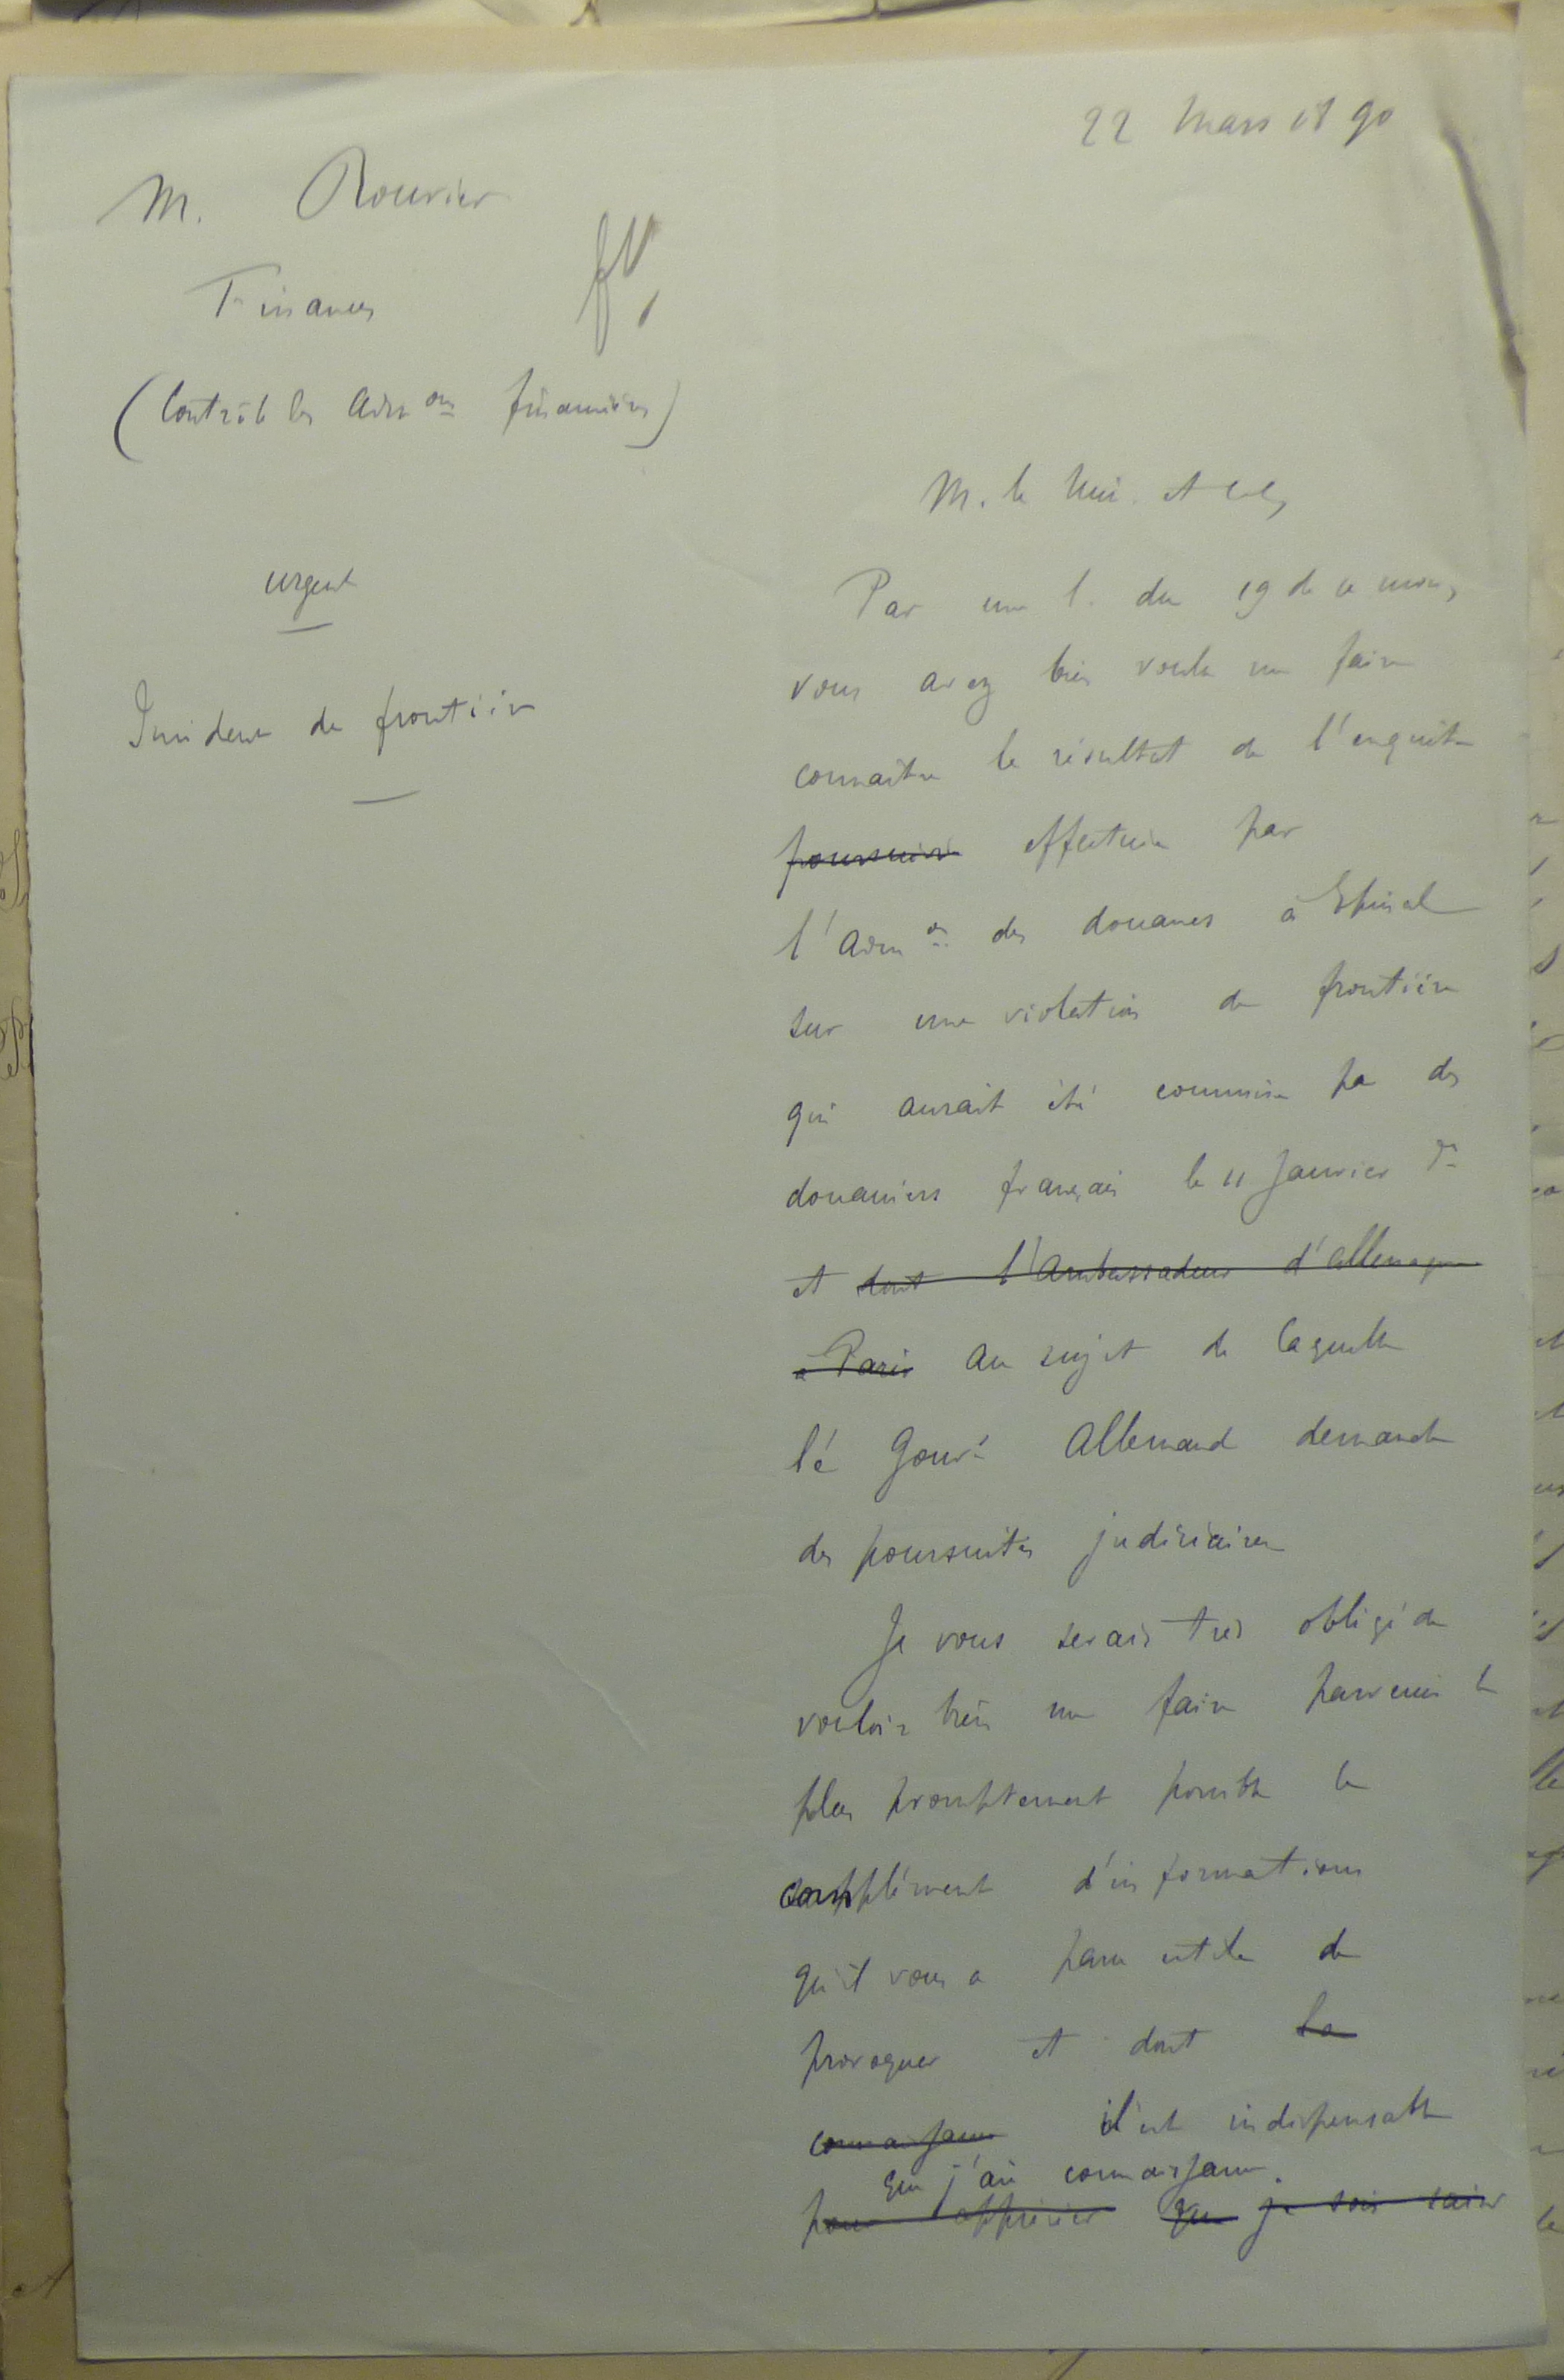 22 Mars 1890
M. Rouvier
Finances
(Contrôle des Adm ons financières)
urgent
Incident de frontière
M. le Min. et Col,
Par une l. du 19 de ce mois,
vous avez bien voulu me faire
connaître le résultat de l'enquête
poursuivie effectuée par
l'Adm on des douanes à Epinal
sur une violation de frontière
qui aurait été commise par des
douaniers français le 11 Janvier dr
et dont l'Ambassadeur d'Allemagne
à Paris au sujet de laquelle
le Gouvt Allemand demande
des poursuites judiciaires
Je vous serais très obligé de
vouloir bien me faire parvenir le
plus promptement possible le
complément d'informations
qu'il vous a paru utile de
provoquer et dont la
connaissance il est indispensable
que j'aie connaissance.
pour apprécier que je sois saisi